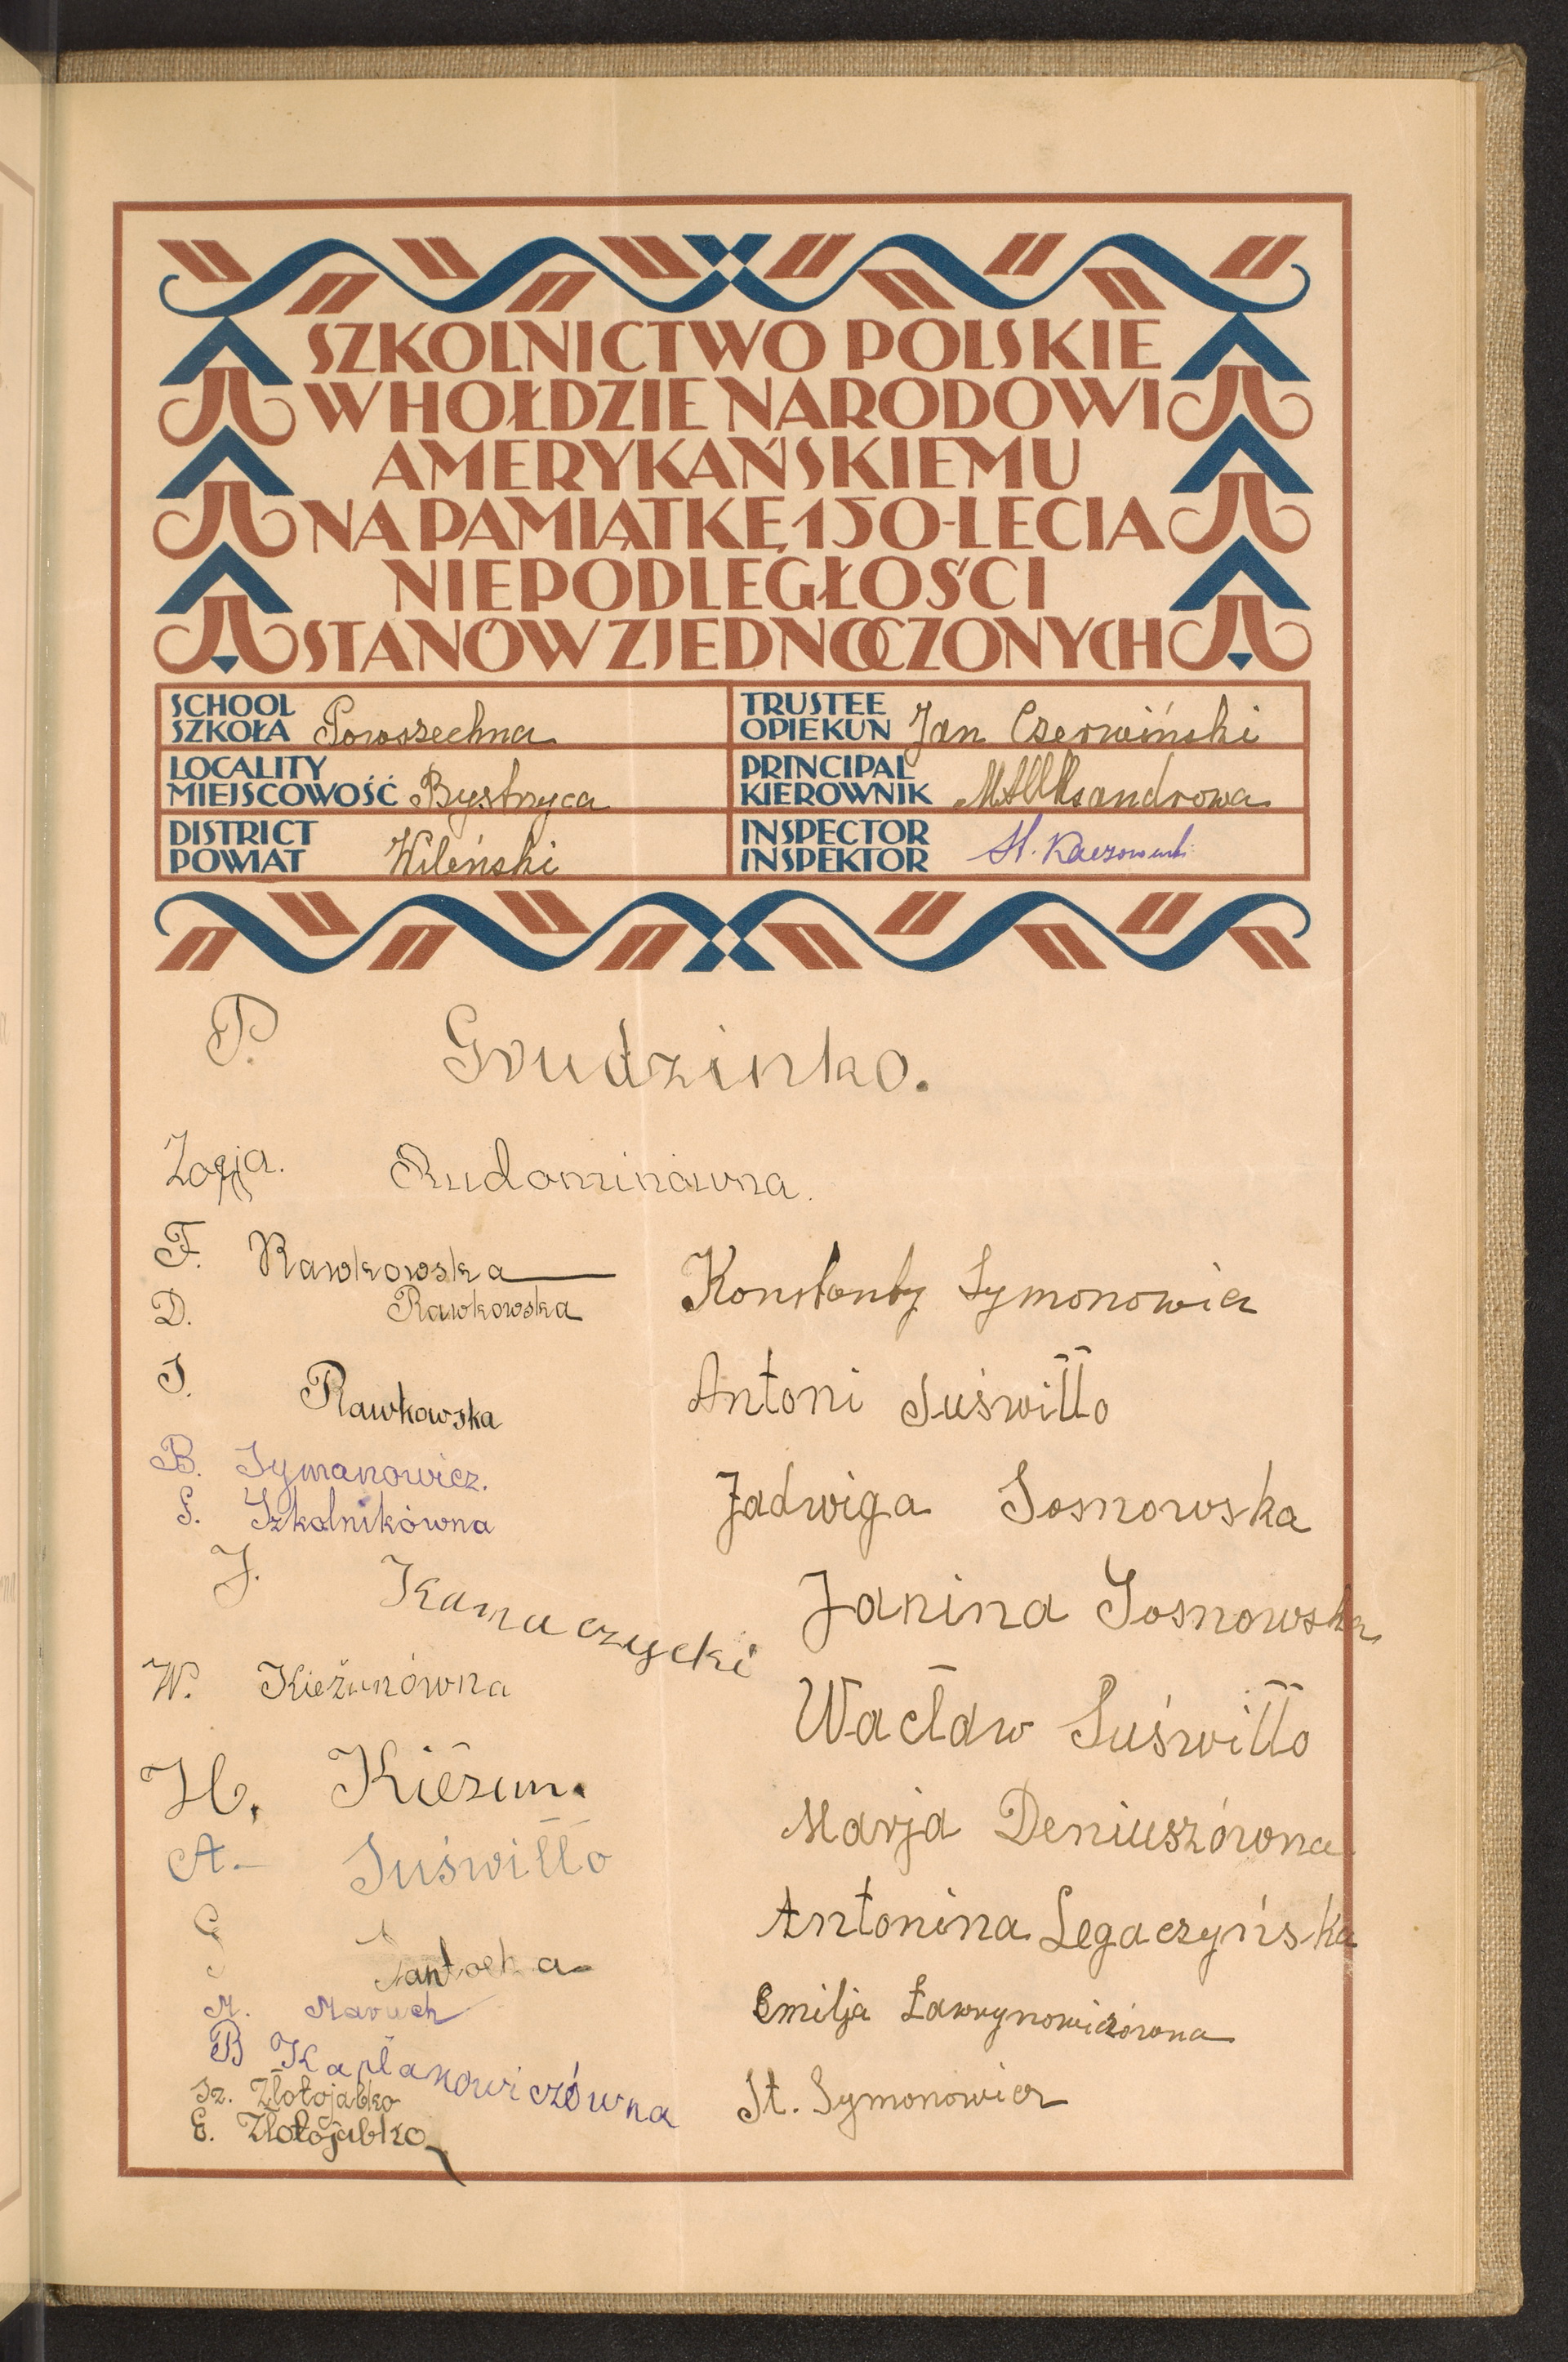 SZKOLNICTWO POLSKIE
W HOŁDZIE NARODOWI
AMERYKAŃSKIEMU
NA PAMIĄTKĘ 150-LECIA
NIEPODLEGŁOŚCI
STANÓW ZJEDNOCZONYCH
SCHOOL
SZKOŁA Powszechna
TRUSTEE
OPIEKUN Jan Czerwiński
LOCALITY
MIEJSCOWOŚĆ Bystrzyca
PRINCIPAL
KIEROWNIK
DISTRICT
POWIAT Wileński
INSPECTOR
INSPEKTOR
P. Grudzinko.
Zofja. Rudominówna.
F. Rawkowska
D. Rawkowska
J. Rawkowska
B. Symanowicz.
S. Szkolnikówna
J. Kamaczycki
W. Kieżunówna
H. Kieżun.
A. Suświłło
M. Maruch
B Kapłanowiczówna
Sz. Złotojabko
E. Złotojabko
Konstanty Symonowicz
Antoni Suświłło
Jadwiga Sosnowska
Janina Sosnowska
Wacław Suświłło
Marja Deniuszówna
Antonina Legaczyńska
Emilja Ławrynowiczówna
St. Symonowicz